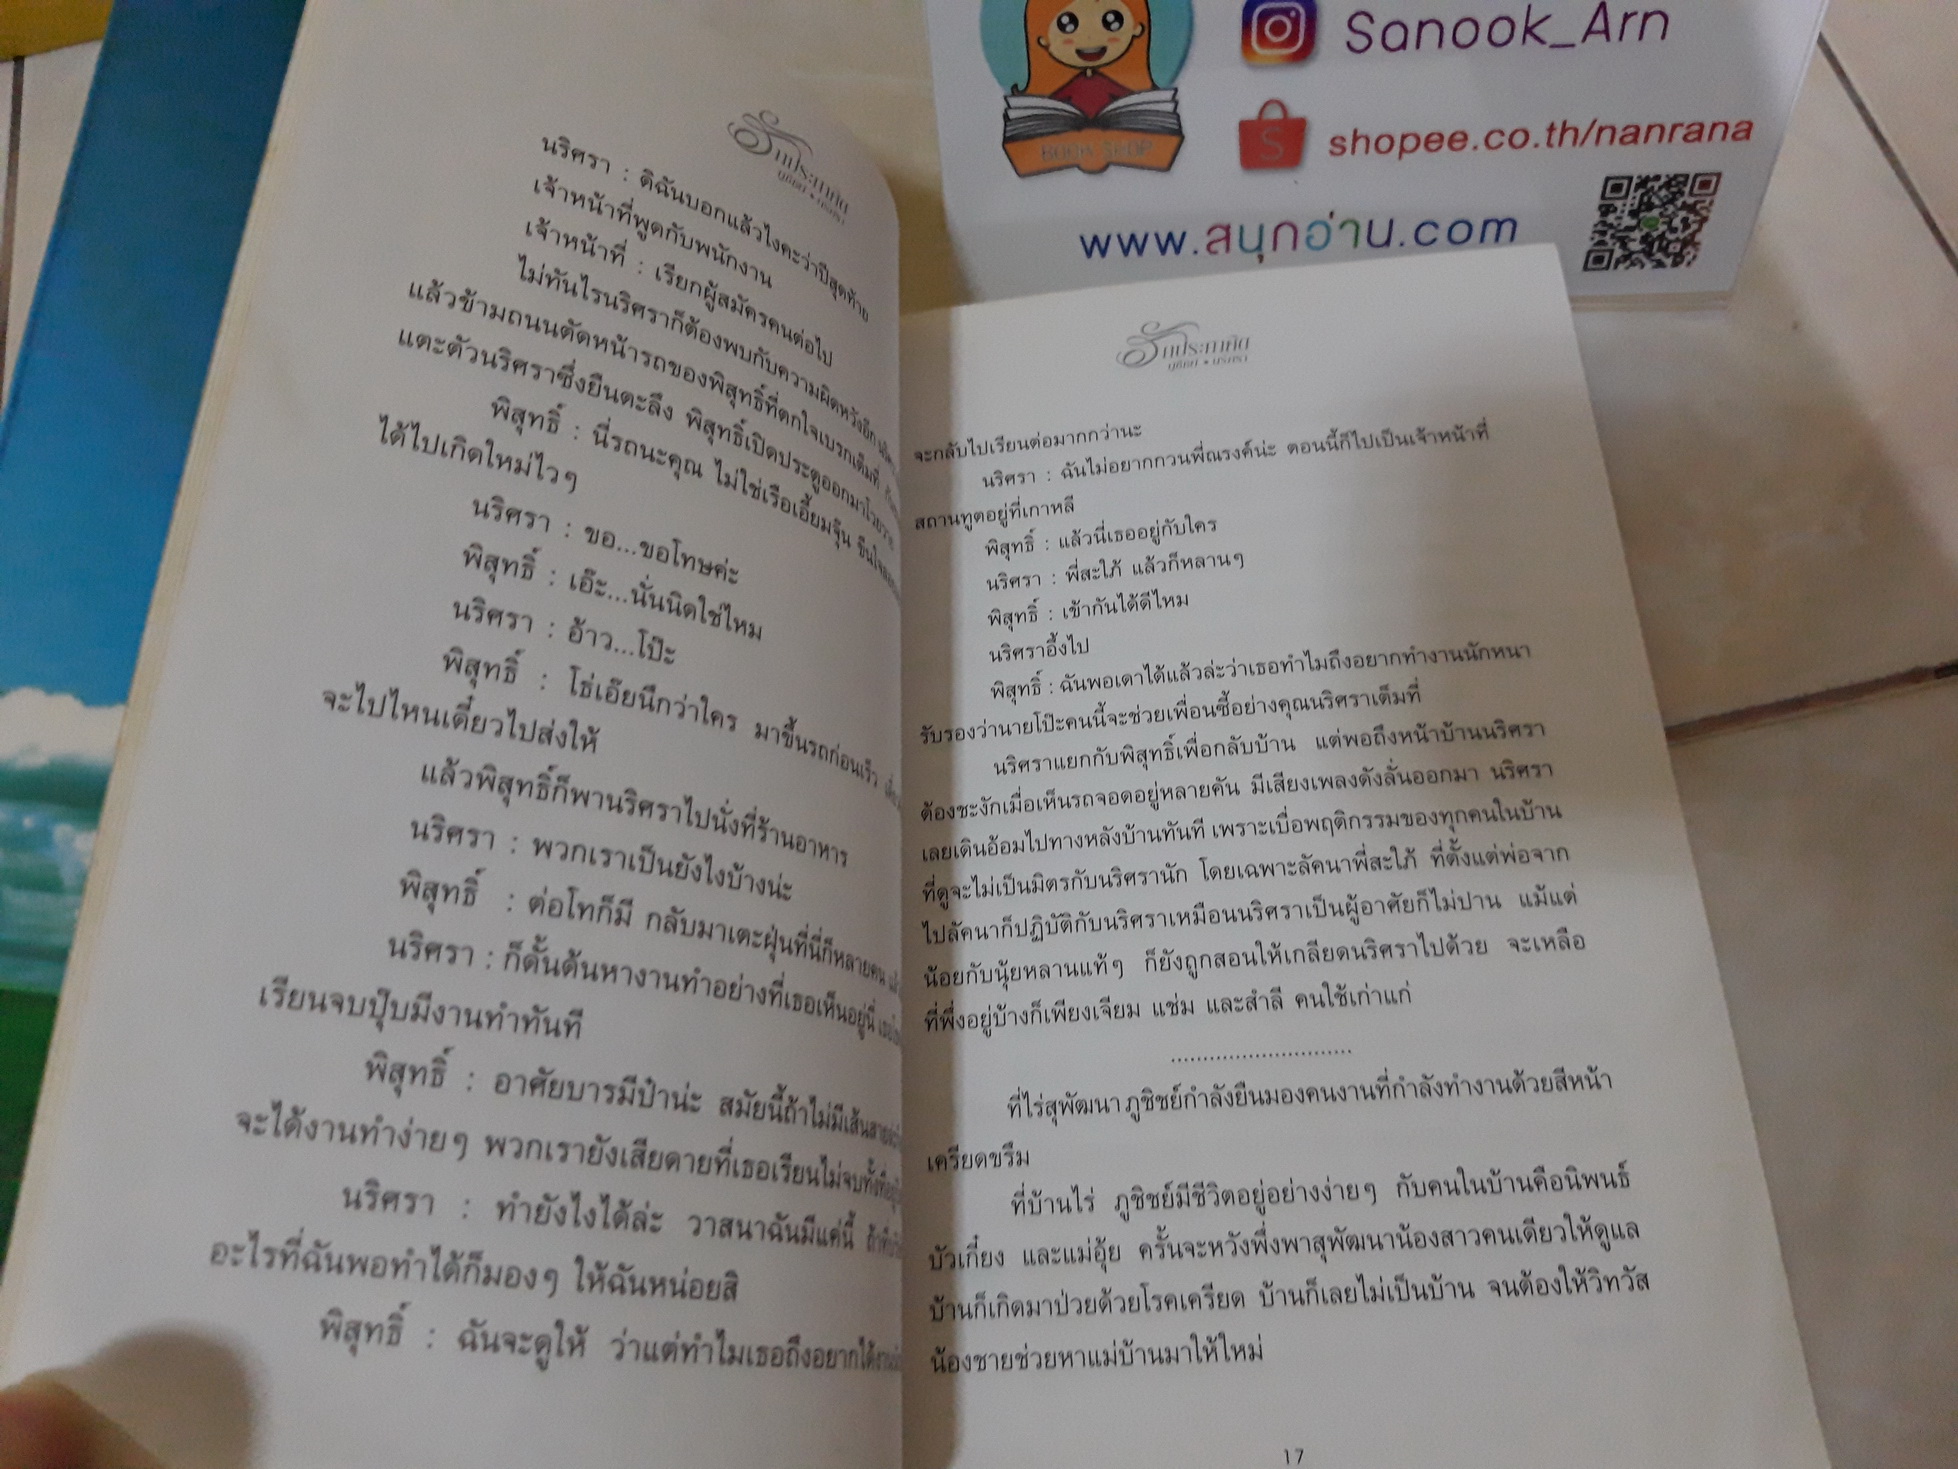 Sanook_Arn
shopee.co.th/nanrana
BOOK SHOP
www.สนุกอ่าน.com
รักประกาศิต
ภูชิชย์ • นริศรา
นริศรา : ดิฉันบอกแล้วไงคะว่าปีสุดท้าย
เจ้าหน้าที่พูดกับพนักงาน
เจ้าหน้าที่ : เรียกผู้สมัครคนต่อไป
ไม่ทันไรนริศราก็ต้องพบกับความผิดหวังอีก
แล้วข้ามถนนตัดหน้ารถของพิสุทธิ์ที่ตกใจเบรกเต็มที่
แตะตัวนริศราซึ่งยืนตะลึง พิสุทธิ์เปิดประตูออกมาโวยวาย
พิสุทธิ์ : นี่รถนะคุณ ไม่ใช่เรือเอี้ยมจุ๊น ขืนใจลอย
ได้ไปเกิดใหม่ไวๆ
นริศรา : ขอ...ขอโทษค่ะ
พิสุทธิ์ : เอ๊ะ...นั่นนิดใช่ไหม
นริศรา : อ้าว...โป๊ะ
พิสุทธิ์ : โธ่เอ๊ยนึกว่าใคร มาขึ้นรถก่อนเร็ว
จะไปไหนเดี๋ยวไปส่งให้
แล้วพิสุทธิ์ก็พานริศราไปนั่งที่ร้านอาหาร
นริศรา : พวกเราเป็นยังไงบ้างน่ะ
พิสุทธิ์ : ต่อโทก็มี กลับมาเตะฝุ่นที่นี่ก็หลายคน
นริศรา : ก็ดั้นด้นหางานทำอย่างที่เธอเห็นอยู่นี่
เรียนจบปุ๊บมีงานทำทันที
พิสุทธิ์ : อาศัยบารมีป๋าน่ะ สมัยนี้ถ้าไม่มีเส้นสาย
จะได้งานทำง่ายๆ พวกเรายังเสียดายที่เธอเรียนไม่จบทั้งที่
นริศรา : ทำยังไงได้ล่ะ วาสนาฉันมีแค่นี้
อะไรที่ฉันพอทำได้ก็มองๆ ให้ฉันหน่อยสิ
พิสุทธิ์ : ฉันจะดูให้ ว่าแต่ทำไมเธอถึงอยากได้
รักประกาศิต
ภูชิชย์ • นริศรา
จะกลับไปเรียนต่อมากกว่านะ
นริศรา : ฉันไม่อยากกวนพี่ณรงค์น่ะ ตอนนี้ก็ไปเป็นเจ้าหน้าที่
สถานทูตอยู่ที่เกาหลี
พิสุทธิ์ : แล้วนี่เธออยู่กับใคร
นริศรา : พี่สะใภ้ แล้วก็หลานๆ
พิสุทธิ์ : เข้ากันได้ดีไหม
นริศราอึ้งไป
พิสุทธิ์ : ฉันพอเดาได้แล้วล่ะว่าเธอทำไมถึงอยากทำงานนักหนา
รับรองว่านายโป๊ะคนนี้จะช่วยเพื่อนซี้อย่างคุณนริศราเต็มที่
นริศราแยกกับพิสุทธิ์เพื่อกลับบ้าน แต่พอถึงหน้าบ้านนริศรา
ต้องชะงักเมื่อเห็นรถจอดอยู่หลายคัน มีเสียงเพลงดังลั่นออกมา นริศรา
เลยเดินอ้อมไปทางหลังบ้านทันที เพราะเบื่อพฤติกรรมของทุกคนในบ้าน
ที่ดูจะไม่เป็นมิตรกับนริศรานัก โดยเฉพาะลัคนาพี่สะใภ้ ที่ตั้งแต่พ่อจาก
ไปลัคนาก็ปฏิบัติกับนริศราเหมือนนริศราเป็นผู้อาศัยก็ไม่ปาน แม้แต่
น้อยกับนุ้ยหลานแท้ๆ ก็ยังถูกสอนให้เกลียดนริศราไปด้วย จะเหลือ
ที่พึ่งอยู่บ้างก็เพียงเจียม แช่ม และสำลี คนใช้เก่าแก่
............................
ที่ไร่สุพัฒนา ภูชิชย์กำลังยืนมองคนงานที่กำลังทำงานด้วยสีหน้า
เครียดขรึม
ที่บ้านไร่ ภูชิชย์มีชีวิตอยู่อย่างง่ายๆ กับคนในบ้านคือนิพนธ์
บัวเกี๋ยง และแม่อุ้ย ครั้นจะหวังพึ่งพาสุพัฒนาน้องสาวคนเดียวให้ดูแล
บ้านก็เกิดมาป่วยด้วยโรคเครียด บ้านก็เลยไม่เป็นบ้าน จนต้องให้วิทวัส
น้องชายช่วยหาแม่บ้านมาให้ใหม่
17